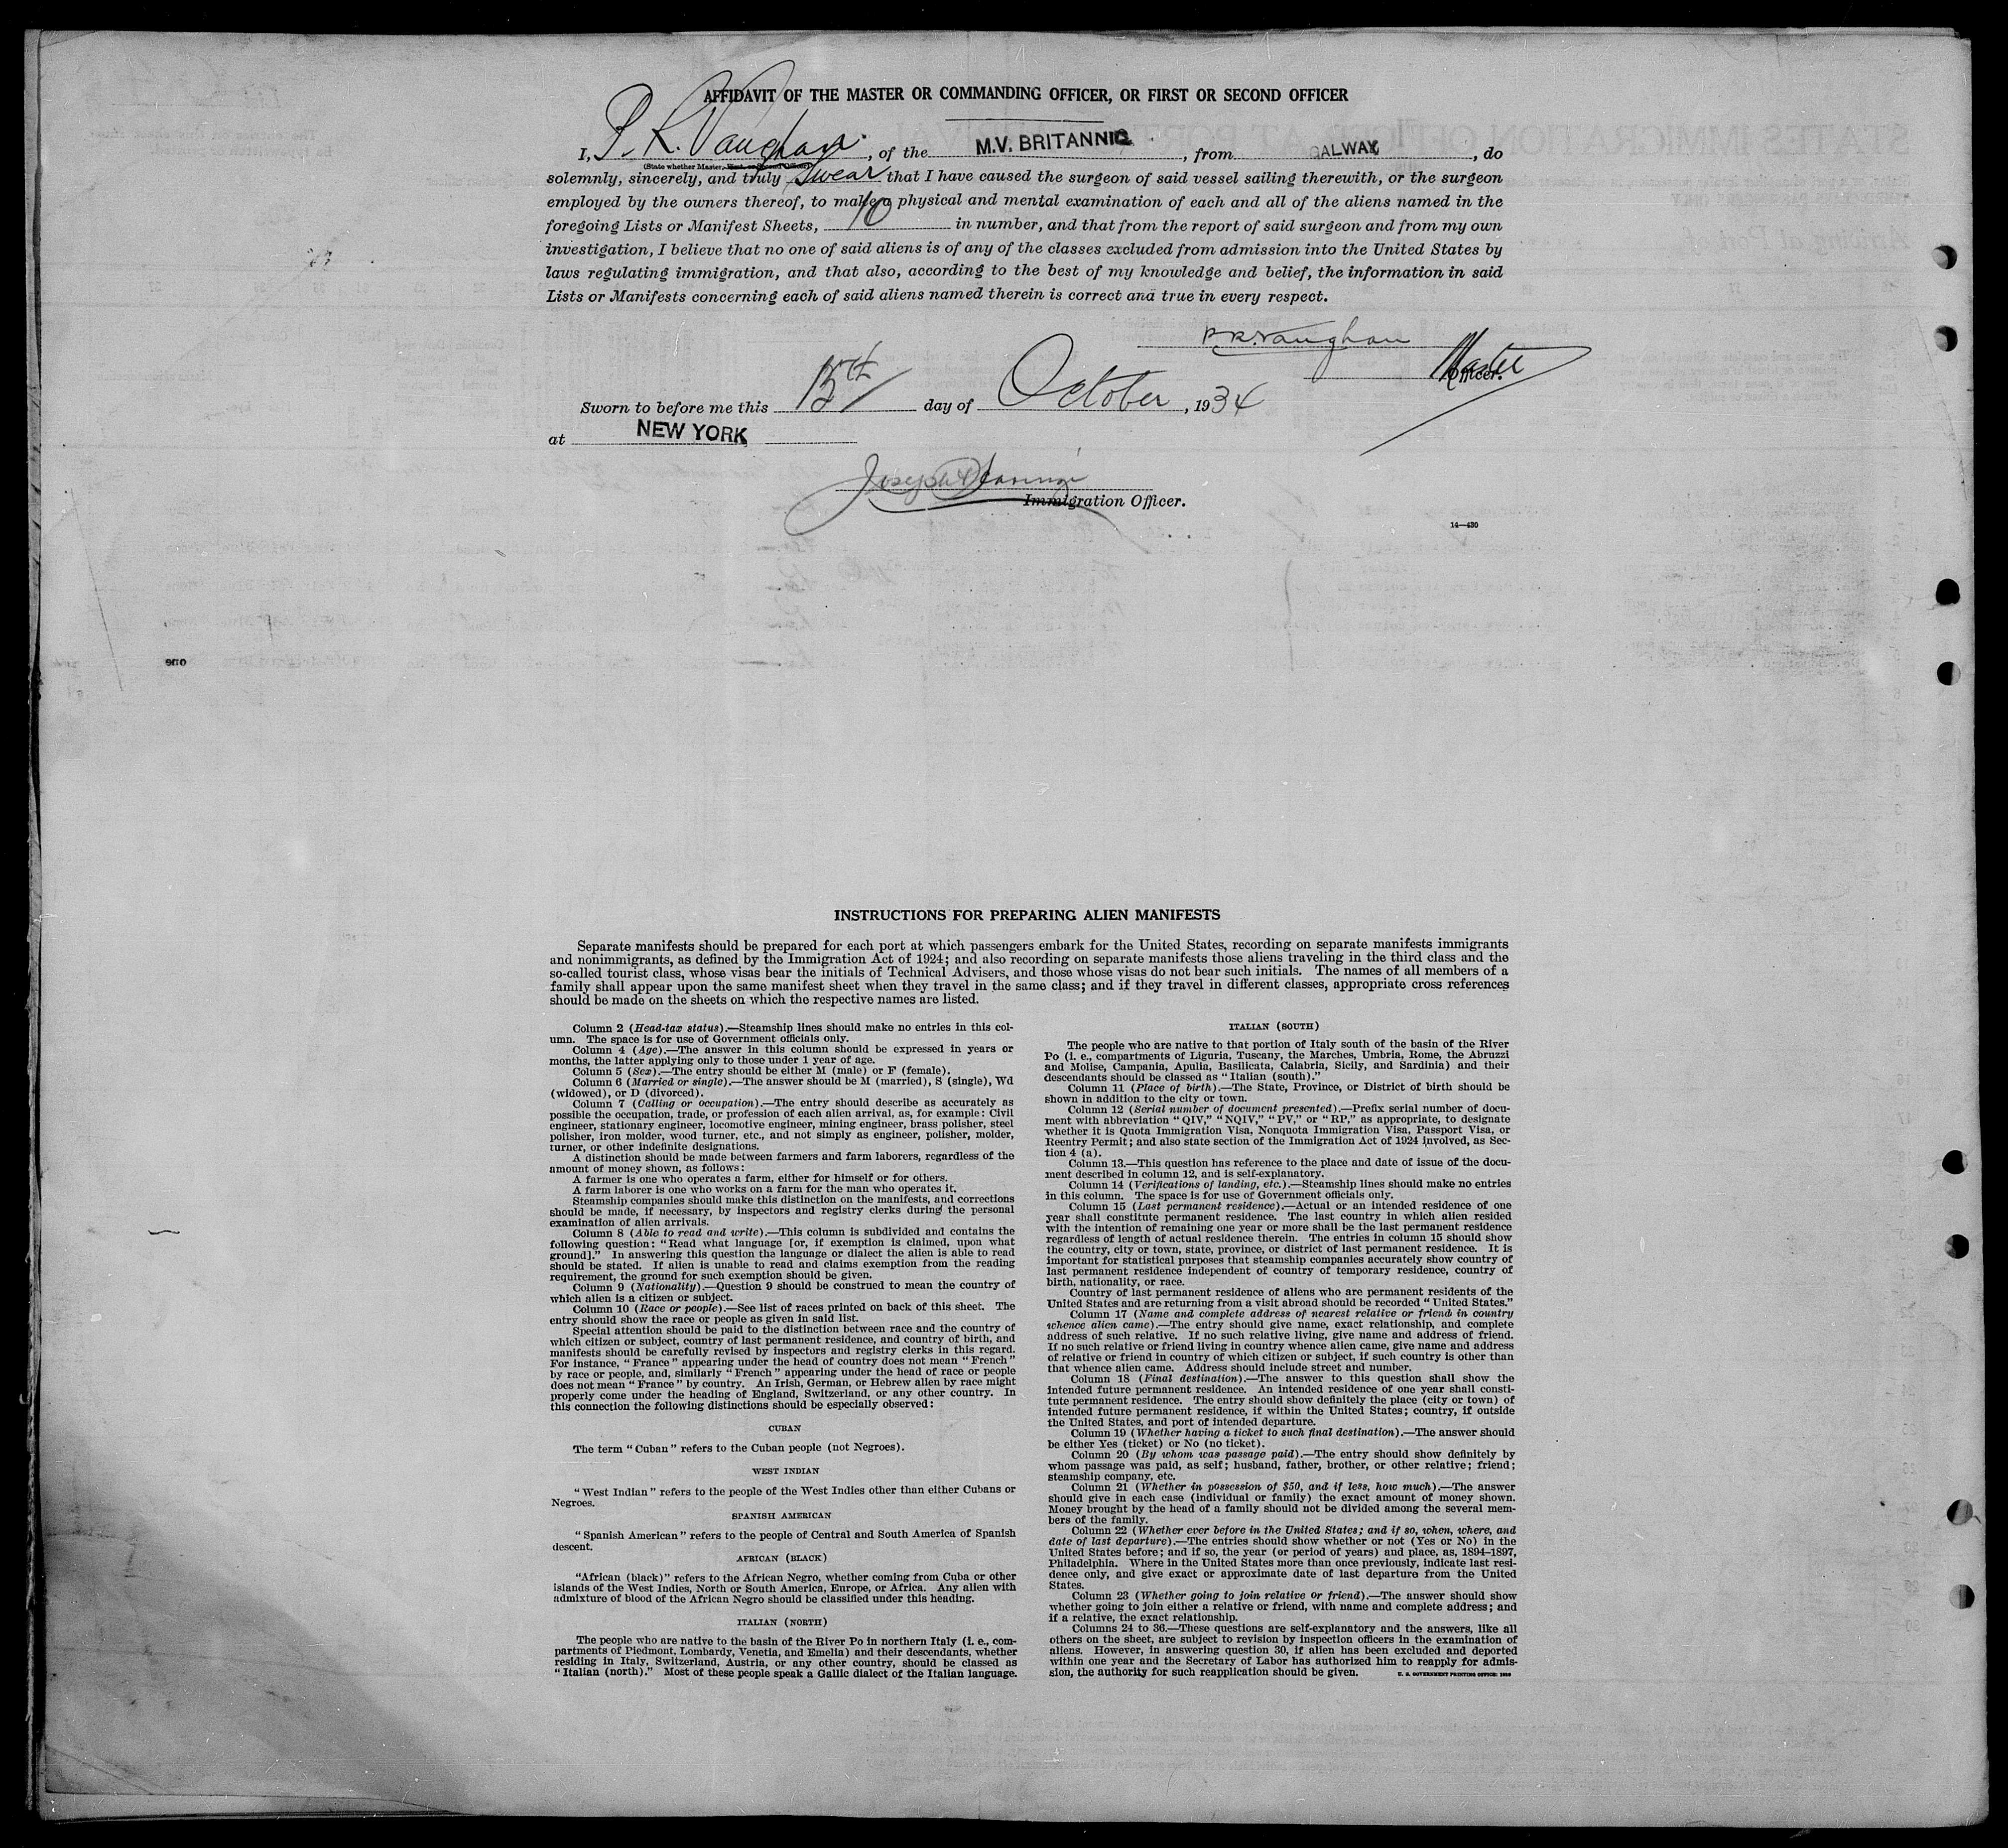 AFFIDAVIT OF THE MASTER OR COMMANDING OFFICER, OR FIRST OR SECOND OFFICER
I, P. R. Vaughan, of the M.V. BRITANNIC, from GALWAY, do
(State whether Master, First, or Second Officer)
solemnly, sincerely, and truly swear that I have caused the surgeon of said vessel sailing therewith, or the surgeon
employed by the owners thereof, to make a physical and mental examination of each and all of the aliens named in the
foregoing Lists or Manifest Sheets, 10 in number, and that from the report of said surgeon and from my own
investigation, I believe that no one of said aliens is of any of the classes excluded from admission into the United States by
laws regulating immigration, and that also, according to the best of my knowledge and belief, the information in said
Lists or Manifests concerning each of said aliens named therein is correct and true in every respect.
P.R. Vaughan
Master
Officer.
Sworn to before me this 15th day of October, 1934
at NEW YORK
Joseph
Immigration Officer.
14—430
INSTRUCTIONS FOR PREPARING ALIEN MANIFESTS
Separate manifests should be prepared for each port at which passengers embark for the United States, recording on separate manifests immigrants
and nonimmigrants, as defined by the Immigration Act of 1924; and also recording on separate manifests those aliens traveling in the third class and the
so-called tourist class, whose visas bear the initials of Technical Advisers, and those whose visas do not bear such initials. The names of all members of a
family shall appear upon the same manifest sheet when they travel in the same class; and if they travel in different classes, appropriate cross references
should be made on the sheets on which the respective names are listed.
Column 2 (Head-tax status).—Steamship lines should make no entries in this col-
umn. The space is for use of Government officials only.
Column 4 (Age).—The answer in this column should be expressed in years or
months, the latter applying only to those under 1 year of age.
Column 5 (Sex).—The entry should be either M (male) or F (female).
Column 6 (Married or single).—The answer should be M (married), S (single), Wd
(widowed), or D (divorced).
Column 7 (Calling or occupation).—The entry should describe as accurately as
possible the occupation, trade, or profession of each alien arrival, as, for example: Civil
engineer, stationary engineer, locomotive engineer, mining engineer, brass polisher, steel
polisher, iron molder, wood turner, etc., and not simply as engineer, polisher, molder,
turner, or other indefinite designations.
A distinction should be made between farmers and farm laborers, regardless of the
amount of money shown, as follows:
A farmer is one who operates a farm, either for himself or for others.
A farm laborer is one who works on a farm for the man who operates it.
Steamship companies should make this distinction on the manifests, and corrections
should be made, if necessary, by inspectors and registry clerks during the personal
examination of alien arrivals.
Column 8 (Able to read and write).—This column is subdivided and contains the
following question: “Read what language [or, if exemption is claimed, upon what
ground].” In answering this question the language or dialect the alien is able to read
should be stated. If alien is unable to read and claims exemption from the reading
requirement, the ground for such exemption should be given.
Column 9 (Nationality).—Question 9 should be construed to mean the country of
which alien is a citizen or subject.
Column 10 (Race or people).—See list of races printed on back of this sheet. The
entry should show the race or people as given in said list.
Special attention should be paid to the distinction between race and the country of
which citizen or subject, country of last permanent residence, and country of birth, and
manifests should be carefully revised by inspectors and registry clerks in this regard.
For instance, “France” appearing under the head of country does not mean “French”
by race or people, and, similarly “French” appearing under the head of race or people
does not mean “France” by country. An Irish, German, or Hebrew alien by race might
properly come under the heading of England, Switzerland, or any other country. In
this connection the following distinctions should be especially observed:
CUBAN
The term “Cuban” refers to the Cuban people (not Negroes).
WEST INDIAN
“West Indian” refers to the people of the West Indies other than either Cubans or
Negroes.
SPANISH AMERICAN
“Spanish American” refers to the people of Central and South America of Spanish
descent.
AFRICAN (BLACK)
“African (black)” refers to the African Negro, whether coming from Cuba or other
islands of the West Indies, North or South America, Europe, or Africa. Any alien with
admixture of blood of the African Negro should be classified under this heading.
ITALIAN (NORTH)
The people who are native to the basin of the River Po in northern Italy (i. e., com-
partments of Piedmont, Lombardy, Venetia, and Emelia) and their descendants, whether
residing in Italy, Switzerland, Austria, or any other country, should be classed as
“Italian (north).” Most of these people speak a Gallic dialect of the Italian language.
ITALIAN (SOUTH)
The people who are native to that portion of Italy south of the basin of the River
Po (i. e., compartments of Liguria, Tuscany, the Marches, Umbria, Rome, the Abruzzi
and Molise, Campania, Apulia, Basilicata, Calabria, Sicily, and Sardinia) and their
descendants should be classed as “Italian (south).”
Column 11 (Place of birth).—The State, Province, or District of birth should be
shown in addition to the city or town.
Column 12 (Serial number of document presented).—Prefix serial number of docu-
ment with abbreviation “QIV,” “NQIV,” “PV,” or “RP,” as appropriate, to designate
whether it is Quota Immigration Visa, Nonquota Immigration Visa, Passport Visa, or
Reentry Permit; and also state section of the Immigration Act of 1924 involved, as Sec-
tion 4 (a).
Column 13.—This question has reference to the place and date of issue of the docu-
ment described in column 12, and is self-explanatory.
Column 14 (Verifications of landing, etc.).—Steamship lines should make no entries
in this column. The space is for use of Government officials only.
Column 15 (Last permanent residence).—Actual or an intended residence of one
year shall constitute permanent residence. The last country in which alien resided
with the intention of remaining one year or more shall be the last permanent residence
regardless of length of actual residence therein. The entries in column 15 should show
the country, city or town, state, province, or district of last permanent residence. It is
important for statistical purposes that steamship companies accurately show country of
last permanent residence independent of country of temporary residence, country of
birth, nationality, or race.
Country of last permanent residence of aliens who are permanent residents of the
United States and are returning from a visit abroad should be recorded “United States.”
Column 17 (Name and complete address of nearest relative or friend in country
whence alien came).—The entry should give name, exact relationship, and complete
address of such relative. If no such relative living, give name and address of friend.
If no such relative or friend living in country whence alien came, give name and address
of relative or friend in country of which citizen or subject, if such country is other than
that whence alien came. Address should include street and number.
Column 18 (Final destination).—The answer to this question shall show the
intended future permanent residence. An intended residence of one year shall consti-
tute permanent residence. The entry should show definitely the place (city or town) of
intended future permanent residence, if within the United States; country, if outside
the United States, and port of intended departure.
Column 19 (Whether having a ticket to such final destination).—The answer should
be either Yes (ticket) or No (no ticket).
Column 20 (By whom was passage paid).—The entry should show definitely by
whom passage was paid, as self; husband, father, brother, or other relative; friend;
steamship company, etc.
Column 21 (Whether in possession of $50, and if less, how much).—The answer
should give in each case (individual or family) the exact amount of money shown.
Money brought by the head of a family should not be divided among the several mem-
bers of the family.
Column 22 (Whether ever before in the United States; and if so, when, where, and
date of last departure).—The entries should show whether or not (Yes or No) in the
United States before; and if so, the year (or period of years) and place, as, 1894–1897,
Philadelphia. Where in the United States more than once previously, indicate last resi-
dence only, and give exact or approximate date of last departure from the United
States.
Column 23 (Whether going to join relative or friend).—The answer should show
whether going to join either a relative or friend, with name and complete address; and
if a relative, the exact relationship.
Columns 24 to 36.—These questions are self-explanatory and the answers, like all
others on the sheet, are subject to revision by inspection officers in the examination of
aliens. However, in answering question 30, if alien has been excluded and deported
within one year and the Secretary of Labor has authorized him to reapply for admis-
sion, the authority for such reapplication should be given. U. S. GOVERNMENT PRINTING OFFICE: